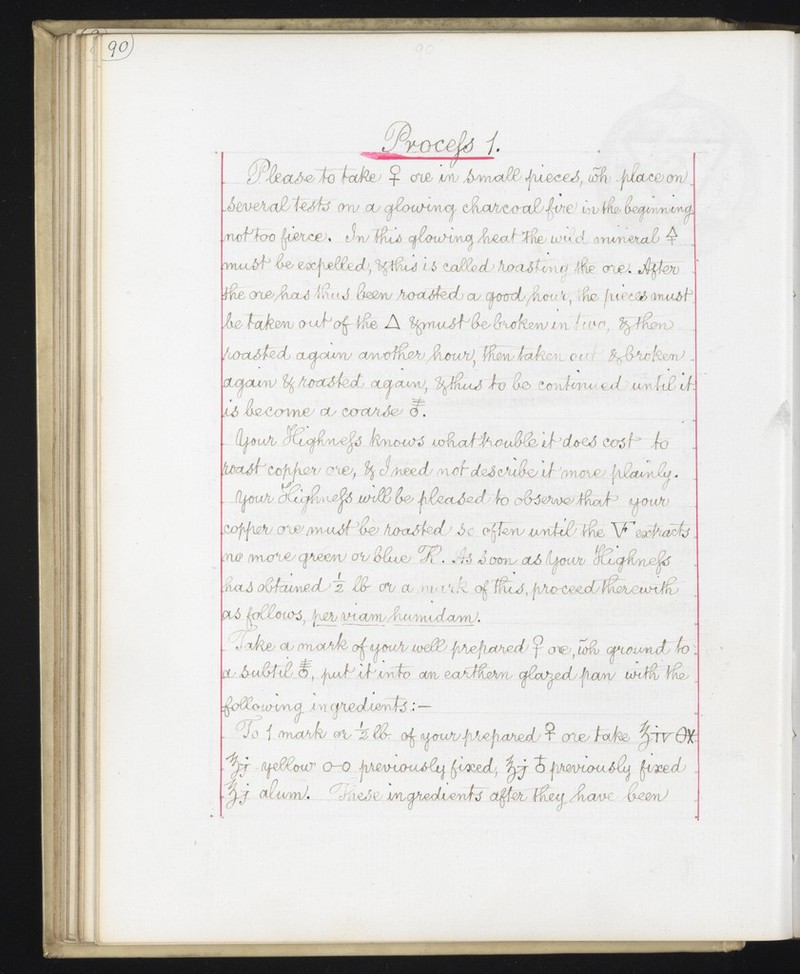 90
Process 1.
Please to take ♀ ore in small pieces, wh place on
several tests on a glowing charcoal fire in the beginning
not too fierce. In this glowing heat the wild mineral 🜍
must be expelled, & this is called roasting the ore. After
the ore has thus been roasted a good hour, the pieces must
be taken out of the △ & must be broken in two, & then
roasted again another hour, then taken out & broken
again & roasted again, & thus to be continued until it
is become a coarse
Your Highness knows what trouble it does cost to
roast copper ore, & I need not describe it more plainly.
Your Highness will be pleased to observe that your
copper ore must be roasted so often until the 🜆 extracts
no more green or blue . As soon as Your Highness
has obtained ½ lb or a mark of this, proceed therewith
as follows, per viam humidam.
Take a mark of your well prepared ♀ ore, wh ground to
a subtil , put it into an earthern glazed pan with the
following ingredients:—
To 1 mark or ½ lb of your prepared ♀ ore take ℥iv
℥j yellow o-o previously fixed, ℥j ♁ previously fixed
℥j alum. These ingredients after they have been